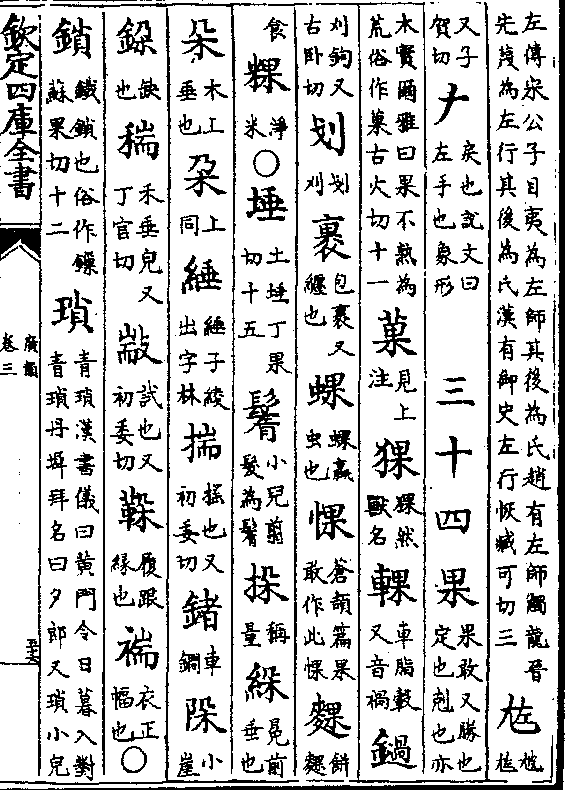 左傳宋公子目夷為左師其後為氏趙有左師觸龍晉
先蔑為左行其後為氏漢有御史左行恢臧可切三
又子
賀切
𠂇
戾也說文曰
左手也象形
三十四果
果敢又勝也
定也剋也亦
木實爾雅曰果不熟為
荒俗作菓古火切十一
菓
見上
注
猓
猓然
獸名
輠
車脂轂
又音禍
鍋
刈鉤又
古卧切
划
划
刈
裹
包裹又
纏也
蜾
蜾蠃
虫也
惈
蒼頡篇果
敢作此惈
䴹
餅
食
粿
淨
米
○
埵
土埵丁果
切十五
鬌
小兒翦
髮為鬌
挆
稱
量
冕前
垂也
朵
木上
垂也
朶
上
同
綞
綞子綾
出字林
揣
揺也又
初委切
鍺
車
鐧
小
崖
缺
也
䅊
禾垂皃又
丁官切
㪜
試也又
初委切
履跟
緣也
褍
衣正
幅也
○
鎖
鐵鎖也俗作鏁
蘇果切十二
瑣
青瑣漢書儀曰黄門令日暮入對
青瑣丹墀拜名曰夕郎又瑣小兒
欽定四庫全書
廣韻
卷三